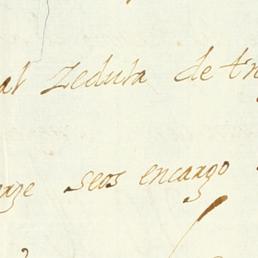 al Zedula de tr
seos encargo